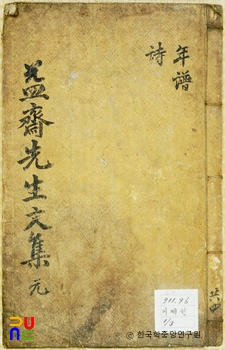 年譜
詩
益齋先生文集 元
共四
911.96
이제현
1/3
© 한국학중앙연구원